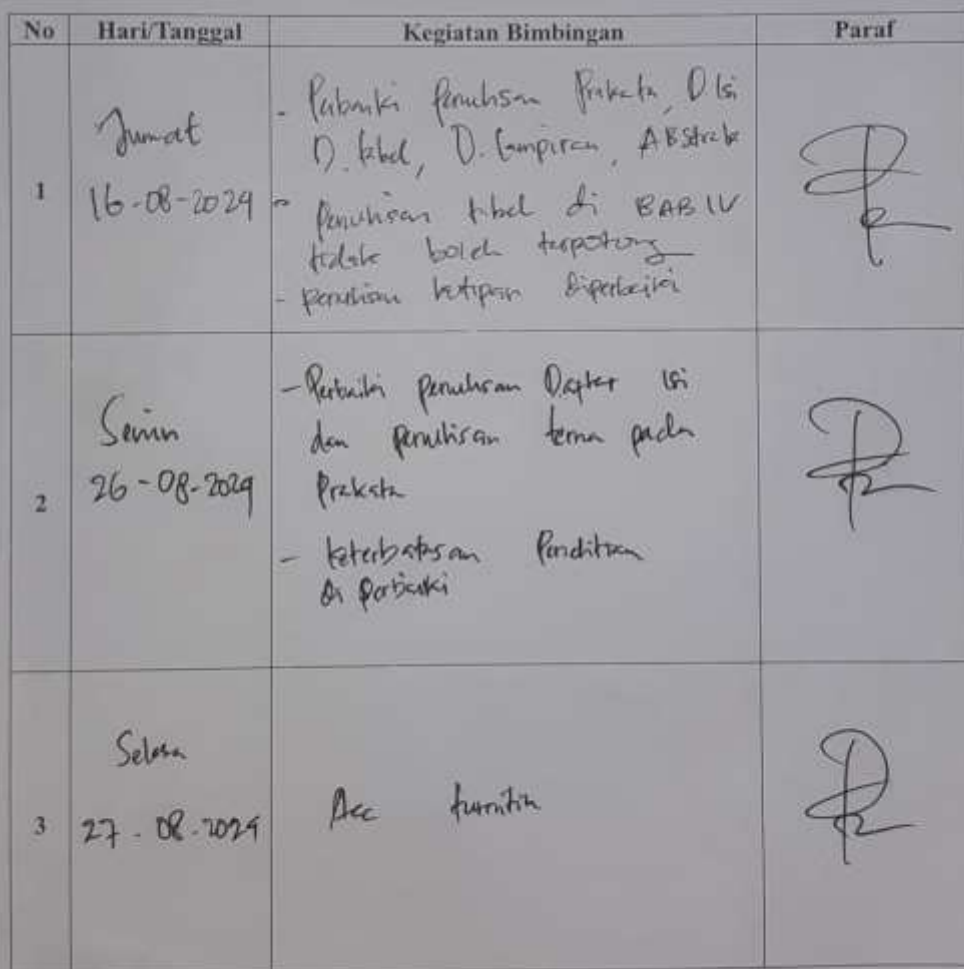 No Hari/Tanggal Kegiatan Bimbingan Paraf
1
Jumat
16-08-2024
- Perbaiki penulisan Prakata, D Isi
D. tabel, D. Lampiran, ABstrak
- Penulisan tabel di BAB IV
tidak boleh terpotong
- penulisan kutipan diperbaiki
2
Senin
26-08-2024
- Perbaiki penulisan Daftar isi
dan penulisan pada
Prakata
- keterbatasan Penelitian
di perbaiki
3
Selasa
27-08-2024
Acc turnitin